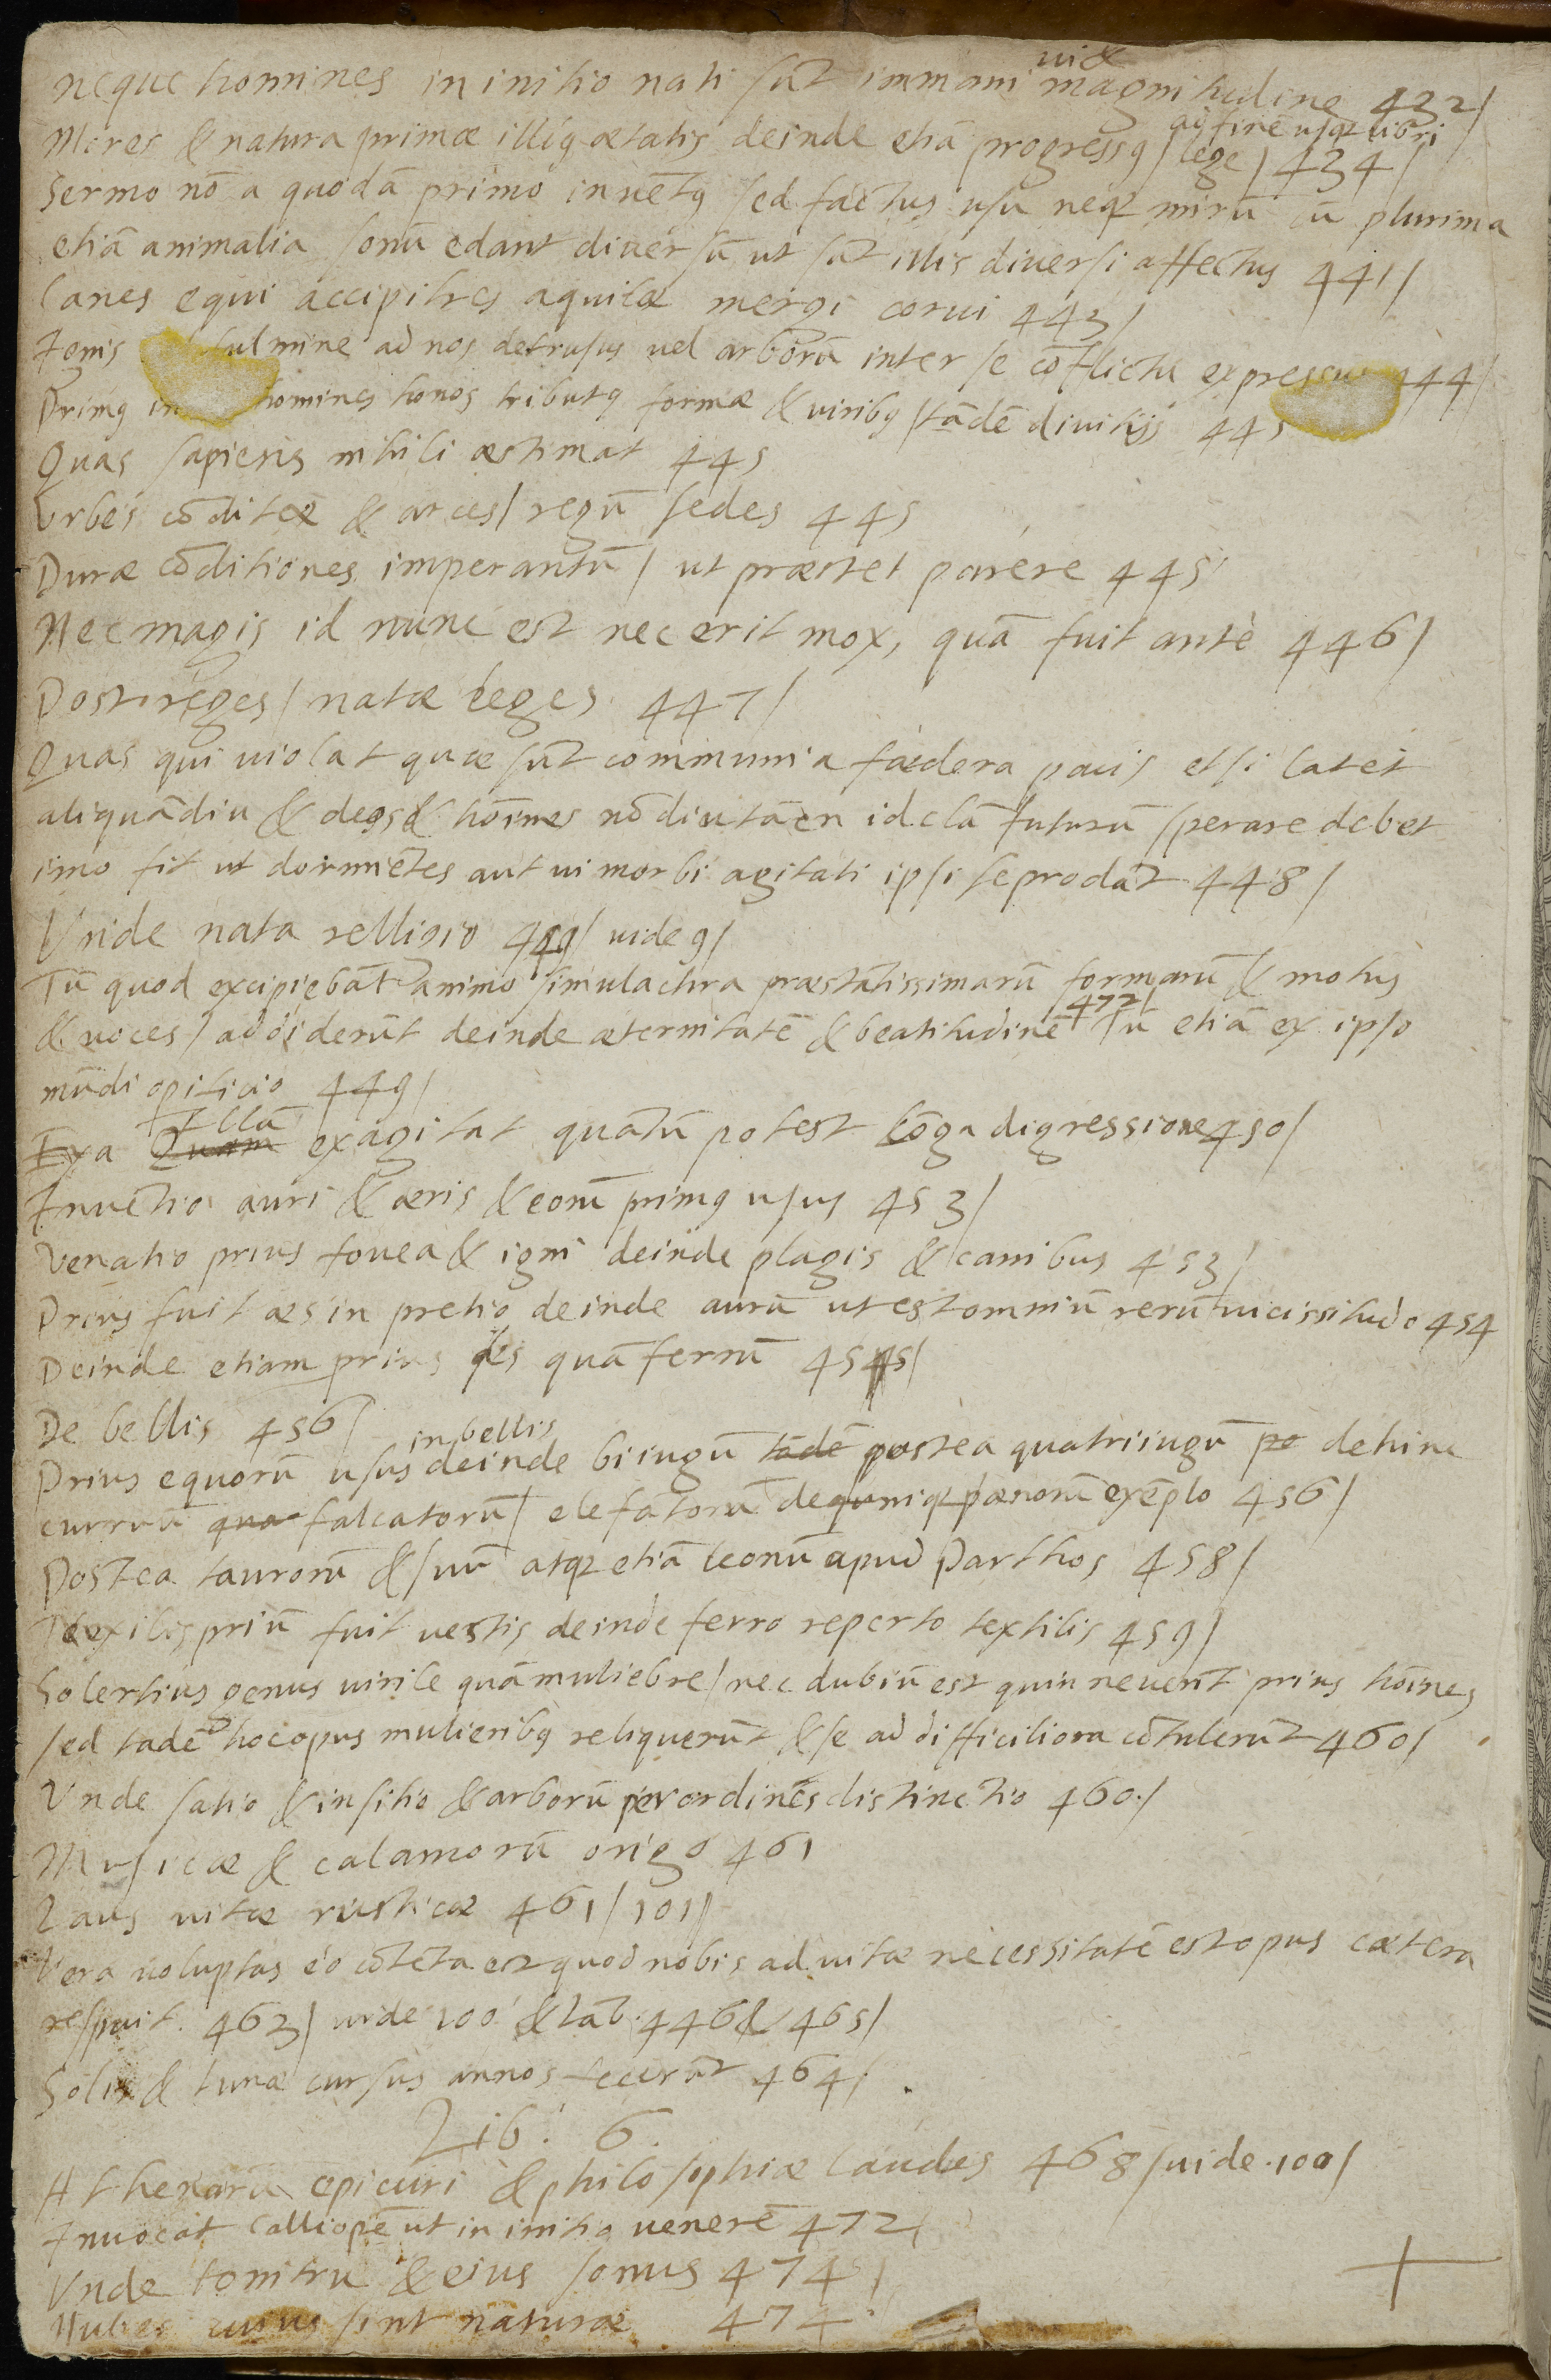 neque homines in initio nati sūt immani magnitudine 432/
Mores & natura primæ illiꝰ ætatis deinde etiā progressꝰ / lege / 434 /
ad finē usqꝫ libri
Sermo nō a quodā primo invētꝰ sed factus usu neqꝫ mirū cū plurima
etiā animalia sonū edant diversū ut sūt illis diversi affectus 441/
Canes equi accipitres aquilæ mergi corvi 443/
Ignis fulmine ad nos detrusus vel arborū inter se cōflictu expressus 444/
Primꝰ homines honos tributꝰ formæ & viribꝰ / tādē divitijs 445
Quas sapiens nihili æstimat 445
Urbes cōditæ & arces / regū sedes 445
Duræ cōditiones imperantū / ut præstet parere 445
Nec magis id nunc est nec erit mox, quā fuit antè 446/
Post reges / natæ leges 447/
Quas qui violat quæ sūt communia fædera pacis etsi latet
aliquādiu & deos & hoīmes nō diu tāen id clā futurū sperare debet
imo fit ut dormiētes aut vi morbi agitati ipsi se prodāt 448/
Unde nata relligio 449/ vide 9/
Tū quod excipiebāt animo simulachra præstātissimarū formarū & motus
& voces / addiderūt deinde æternitatē & beatitudinē 472/ Tū etiā ex ipso
mūdi opificio 449/
Exa Quam Illā exagitat quātū potest lōga digressione 450/
Invētio auri & æris & eorū primꝰ usus 453/
Venatio prius fovea & igni deinde plagis & canibus 453/
Prius fuit æs in pretio deinde aurū ut est omniū rerū vicissitudo 454
Deinde etiam prius æs quā ferrū 455/
De bellis 456/
Prius equorū usus in bellis deinde biiugū tādē postea quatriiugū po dehinc
curruū qua falcatorū / elefātorū deniqꝫ pænorū exēplo 456/
Postea taurorū & suū atqꝫ etiā leonū apud Parthos 458/
Nexilis priū fuit vestis deinde ferro reperto textilis 459/
Solertius genus virile quā muliebre / nec dubiū est quin neverīt prius hoīnes
sed tādē hoc opus mulieribꝰ reliquerūt & se ad difficiliora cōtulerūt 460/
Unde satio & insitio & arborū per ordines distinctio 460./
Musicæ & calamorū origo 461
Laus vitæ rusticæ 461/101/
Vera voluptas eo cōtēta est quod nobis ad vitæ necessitatē est opus cætera
respuit. 463/ vide 100 & Lāb. 446 & 465/
Solis & lunæ cursus annos fecerūt 464/.
Lib. 6.
Athenarū epicuri & philosophiæ laudes 468/ vide 100/
Invocat Calliopē ut in initio venerē 472/
Unde tonitru & eius sonus 474/
Nubes cuius sint naturæ 474